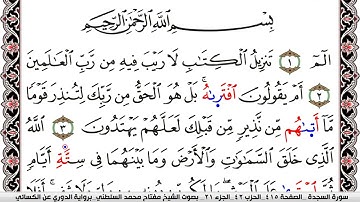 بِسْمِ اللَّهِ الرَّحْمَٰنِ الرَّحِيمِ
الٓمٓ ١ تَنزِيلُ الْكِتَٰبِ لَا رَيْبَ فِيهِ مِن رَّبِّ الْعَٰلَمِينَ
٢ أَمْ يَقُولُونَ افْتَرِىٰهُ بَلْ هُوَ الْحَقُّ مِن رَّبِّكَ لِتُنذِرَ قَوْمًا
مَّا أَتَىٰهُم مِّن نَّذِيرٍ مِّن قَبْلِكَ لَعَلَّهُمْ يَهْتَدُونَ ٣ اللَّهُ
الَّذِى خَلَقَ السَّمَٰوَٰتِ وَالْأَرْضَ وَمَا بَيْنَهُمَا فِى سِتَّةِ أَيَّامٍ
سورة السجدة . الصفحة ٤١٥ . الحزب ٤٢ . الجزء ٢١ . بصوت الشيخ مفتاح محمد السلطني . برواية الدوري عن الكسائي